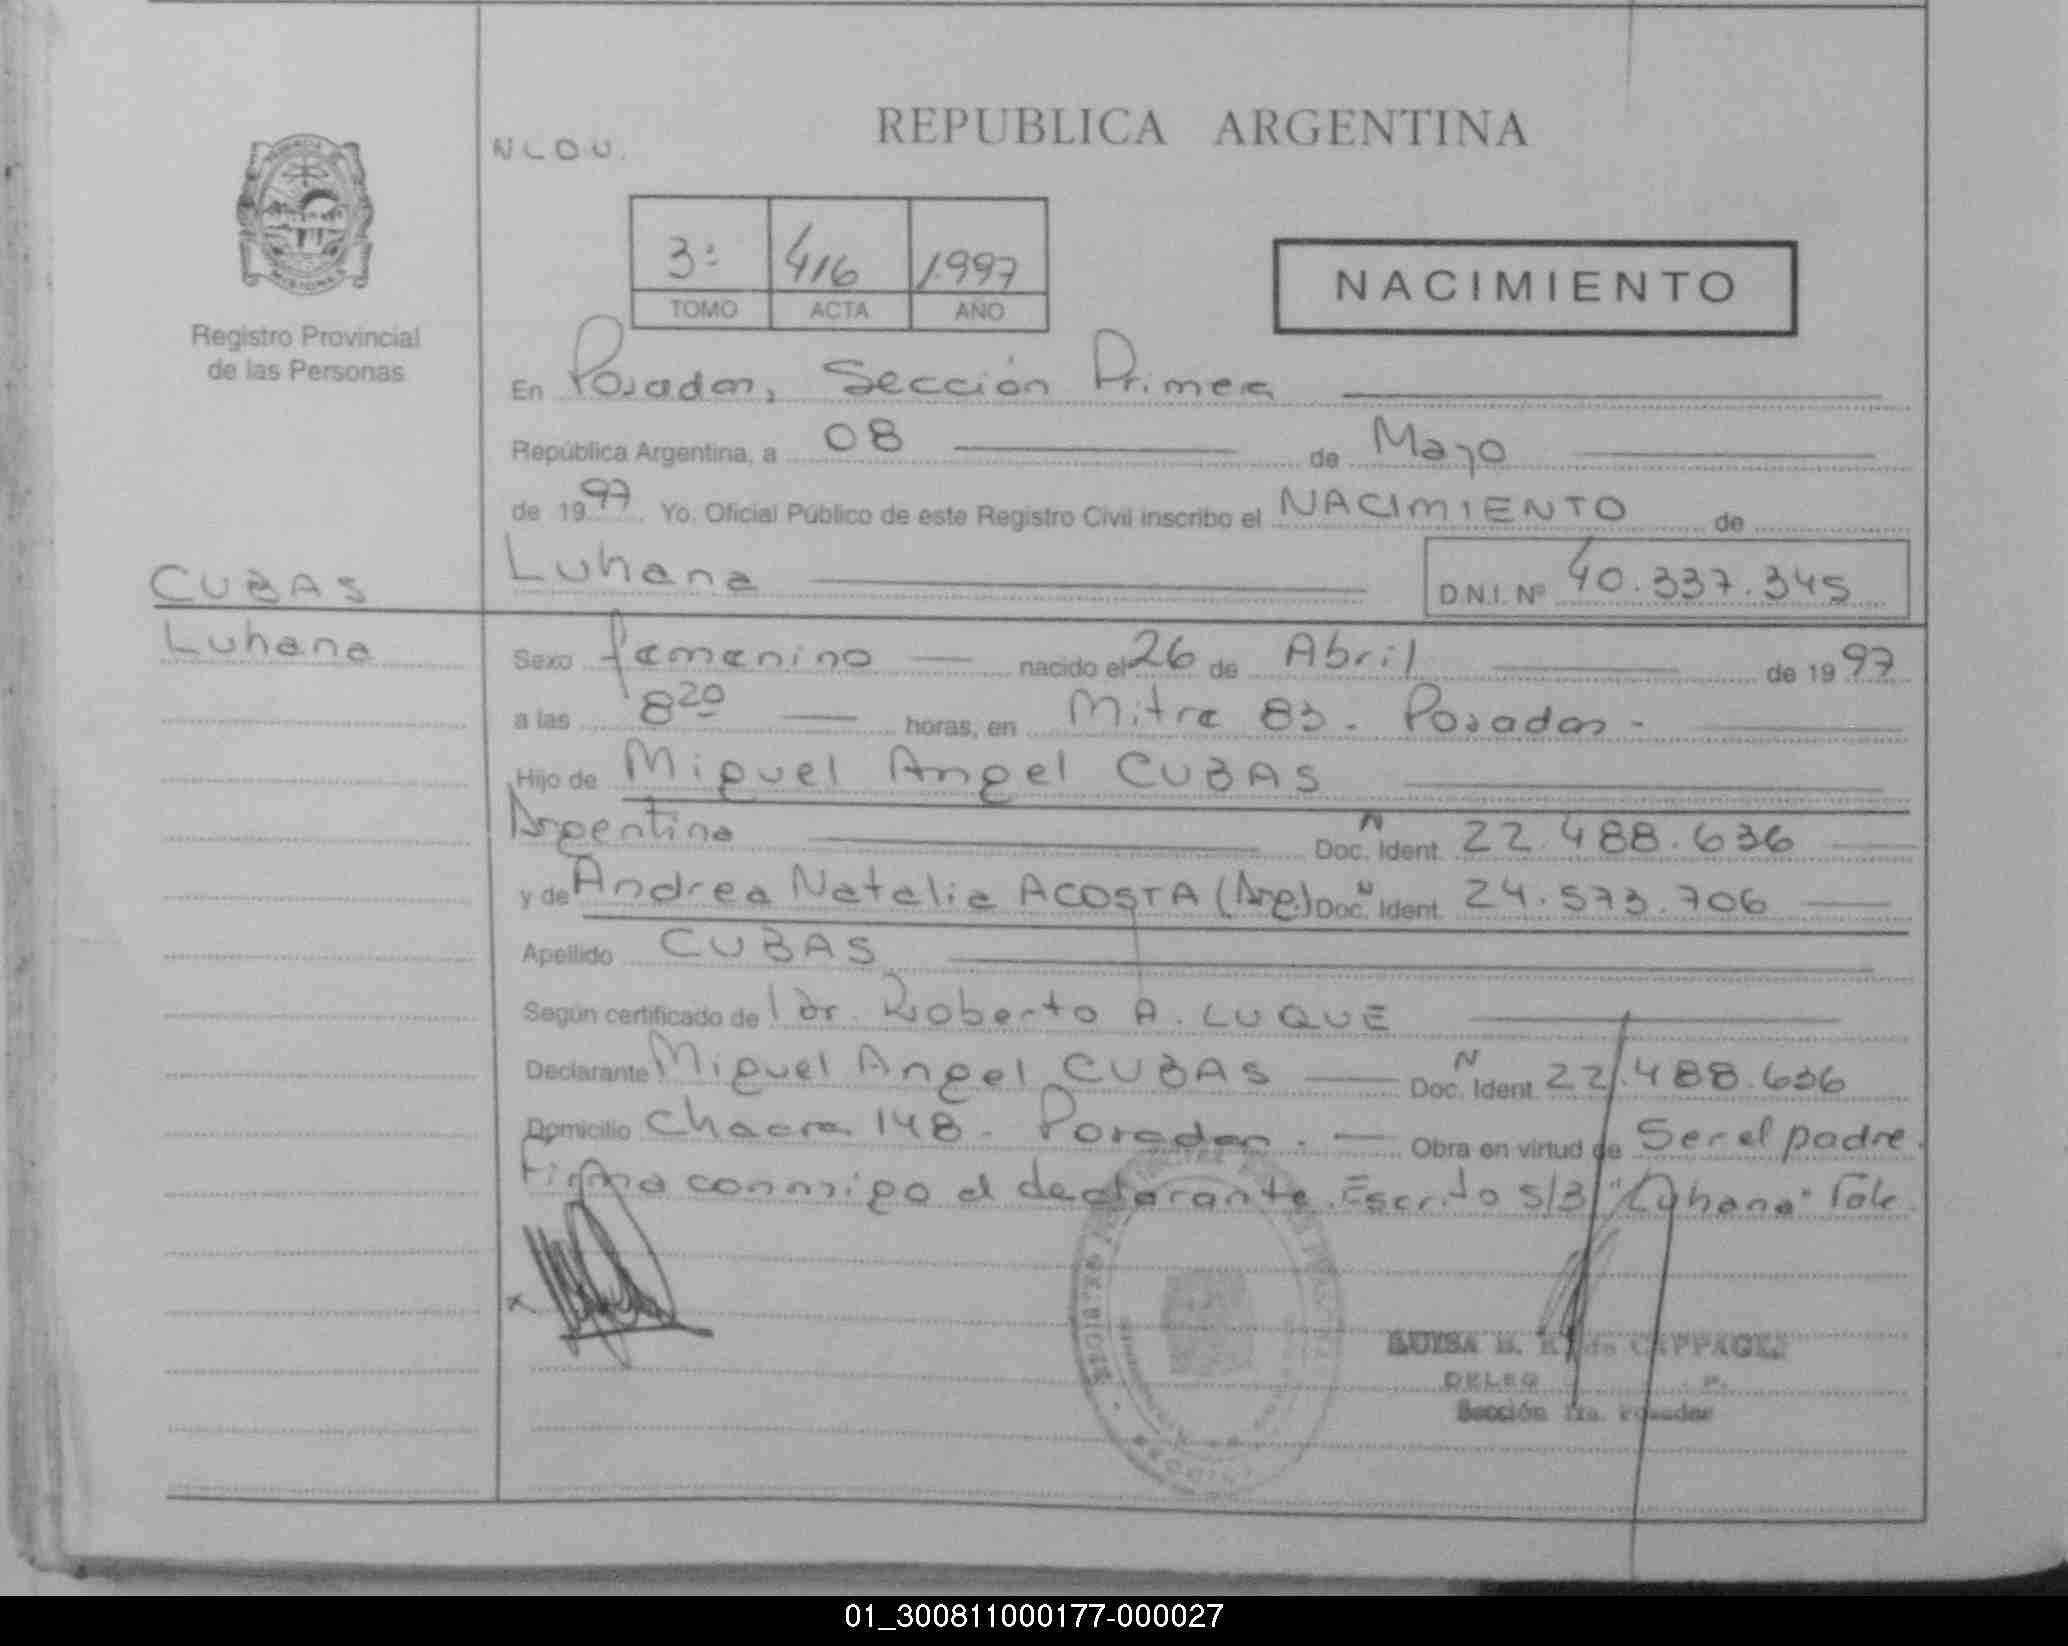 REPUBLICA ARGENTINA
N L O U.
3: 416 1.997
TOMO ACTA AÑO
NACIMIENTO
Registro Provincial
de las Personas
En Posadas, Sección Primera
República Argentina, a 08 de Mayo
de 1997 Yo, Oficial Público de este Registro Civil inscribo el NACIMIENTO de
Luhana D.N.I. Nº 40.337.345
CUBAS
Luhana
Sexo femenino nacido el 26 de Abril de 1997
a las 8 20 horas, en Mitre 83. Posadas -
Hijo de Miguel Angel CUBAS
Argentina N Doc. Ident. 22.488.636
y de Andrea Natalia ACOSTA (Arg.) N Doc. Ident. 24.573.706
Apellido CUBAS
Según certificado del Dr. Roberto A. LUQUE
Declarante Miguel Angel CUBAS N Doc. Ident. 22.488.636
Domicilio Chacra 148 - Posadas. Obra en virtud de Ser el padre.
Firma conmigo el declarante. Escrito S/B "Luhana" Vale.
x
LUISA de CAPPAGLI
DELEG
Sección 1ra. Posadas
01_300811000177-000027